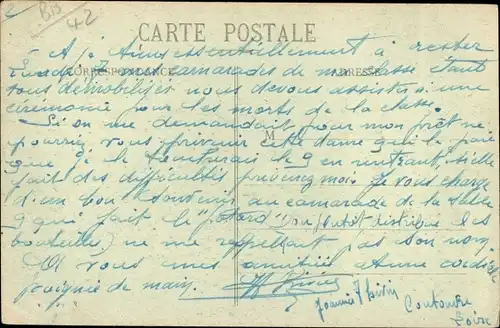 CARTE POSTALE
CORRESPONDANCE ADRESSE
essentiellement à rester
camarades de ma classe étant
tous démobilisés nous devons assister à une
cérémonie pour les morts de la classe.
Si on me demandait pour mon prêt ne
pourriez vous prévenir cette dame qui le paie
que je le toucherais le 9 en rentrant, si elle
fait des difficultés prévenez moi. Je vous charge
d'un bon souvenir au camarade de la salle
9 qui fait le "potard" (ou plutôt distribue les
bouteilles) ne me rappellant pas son nom
A vous mes amitiés et une cordiale
poignée de main
Loire